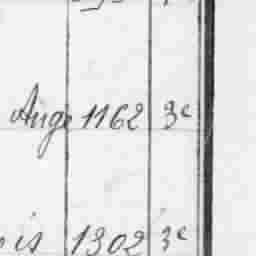 Ange 1162 3e
is 1302 3e